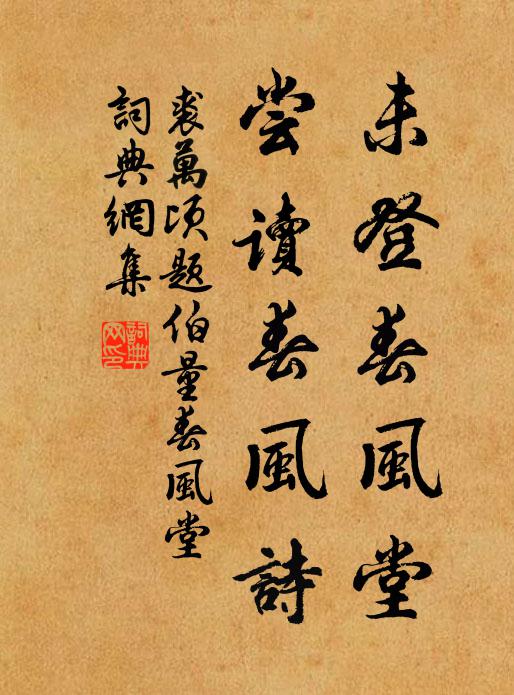 未登春風堂
尝讀春風詩
裘萬頃題伯量春風堂
詞典網集
詞典
网印